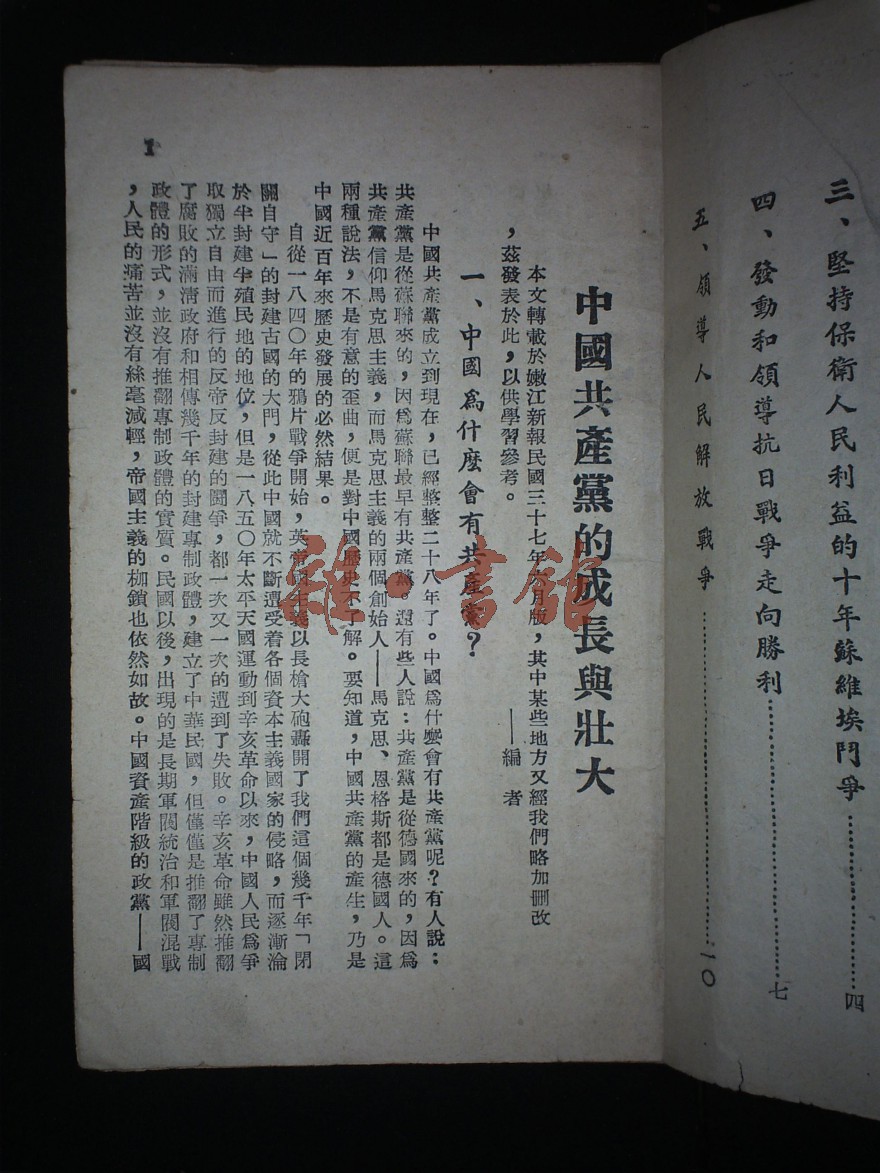 三、堅持保衛人民利益的十年蘇維埃鬥爭……………四
四、發動和領導抗日戰爭走向勝利……………七
五、領導人民解放戰爭……………一〇
中國共產黨的成長與壯大
本文轉載於嫩江新報民國三十七年六月版，其中某些地方又經我們略加刪改
，茲發表於此，以供學習參考。　　　——編　者
一、中國爲什麽會有共產黨？
中國共產黨成立到現在，已經整整二十八年了。中國爲什麽會有共產黨呢？有人說：
共產黨是從蘇聯來的，因爲蘇聯最早有共產黨，還有些人說：共產黨是從德國來的，因爲
共產黨信仰馬克思主義，而馬克思主義的兩個創始人——馬克思、恩格斯都是德國人。這
兩種說法，不是有意的歪曲，便是對中國歷史不了解。要知道，中國共產黨的產生，乃是
中國近百年來歷史發展的必然結果。
自從一八四〇年的鴉片戰爭開始，英帝國主義以長槍大砲轟開了我們這個幾千年「閉
關自守」的封建古國的大門，從此中國就不斷遭受着各個資本主義國家的侵略，而逐漸淪
於半封建半殖民地的地位，但是一八五〇年太平天國運動到辛亥革命以來，中國人民爲爭
取獨立自由而進行的反帝反封建的鬪爭，都一次又一次的遭到了失敗。辛亥革命雖然推翻
了腐敗的滿清政府和相傳幾千年的封建專制政體，建立了中華民國，但僅僅是推翻了專制
政體的形式，並沒有推翻專制政體的實質。民國以後，出現的是長期軍閥統治和軍閥混戰
，人民的痛苦並沒有絲毫減輕，帝國主義的枷鎖也依然如故。中國資產階級的政黨——國
1
雜·書館